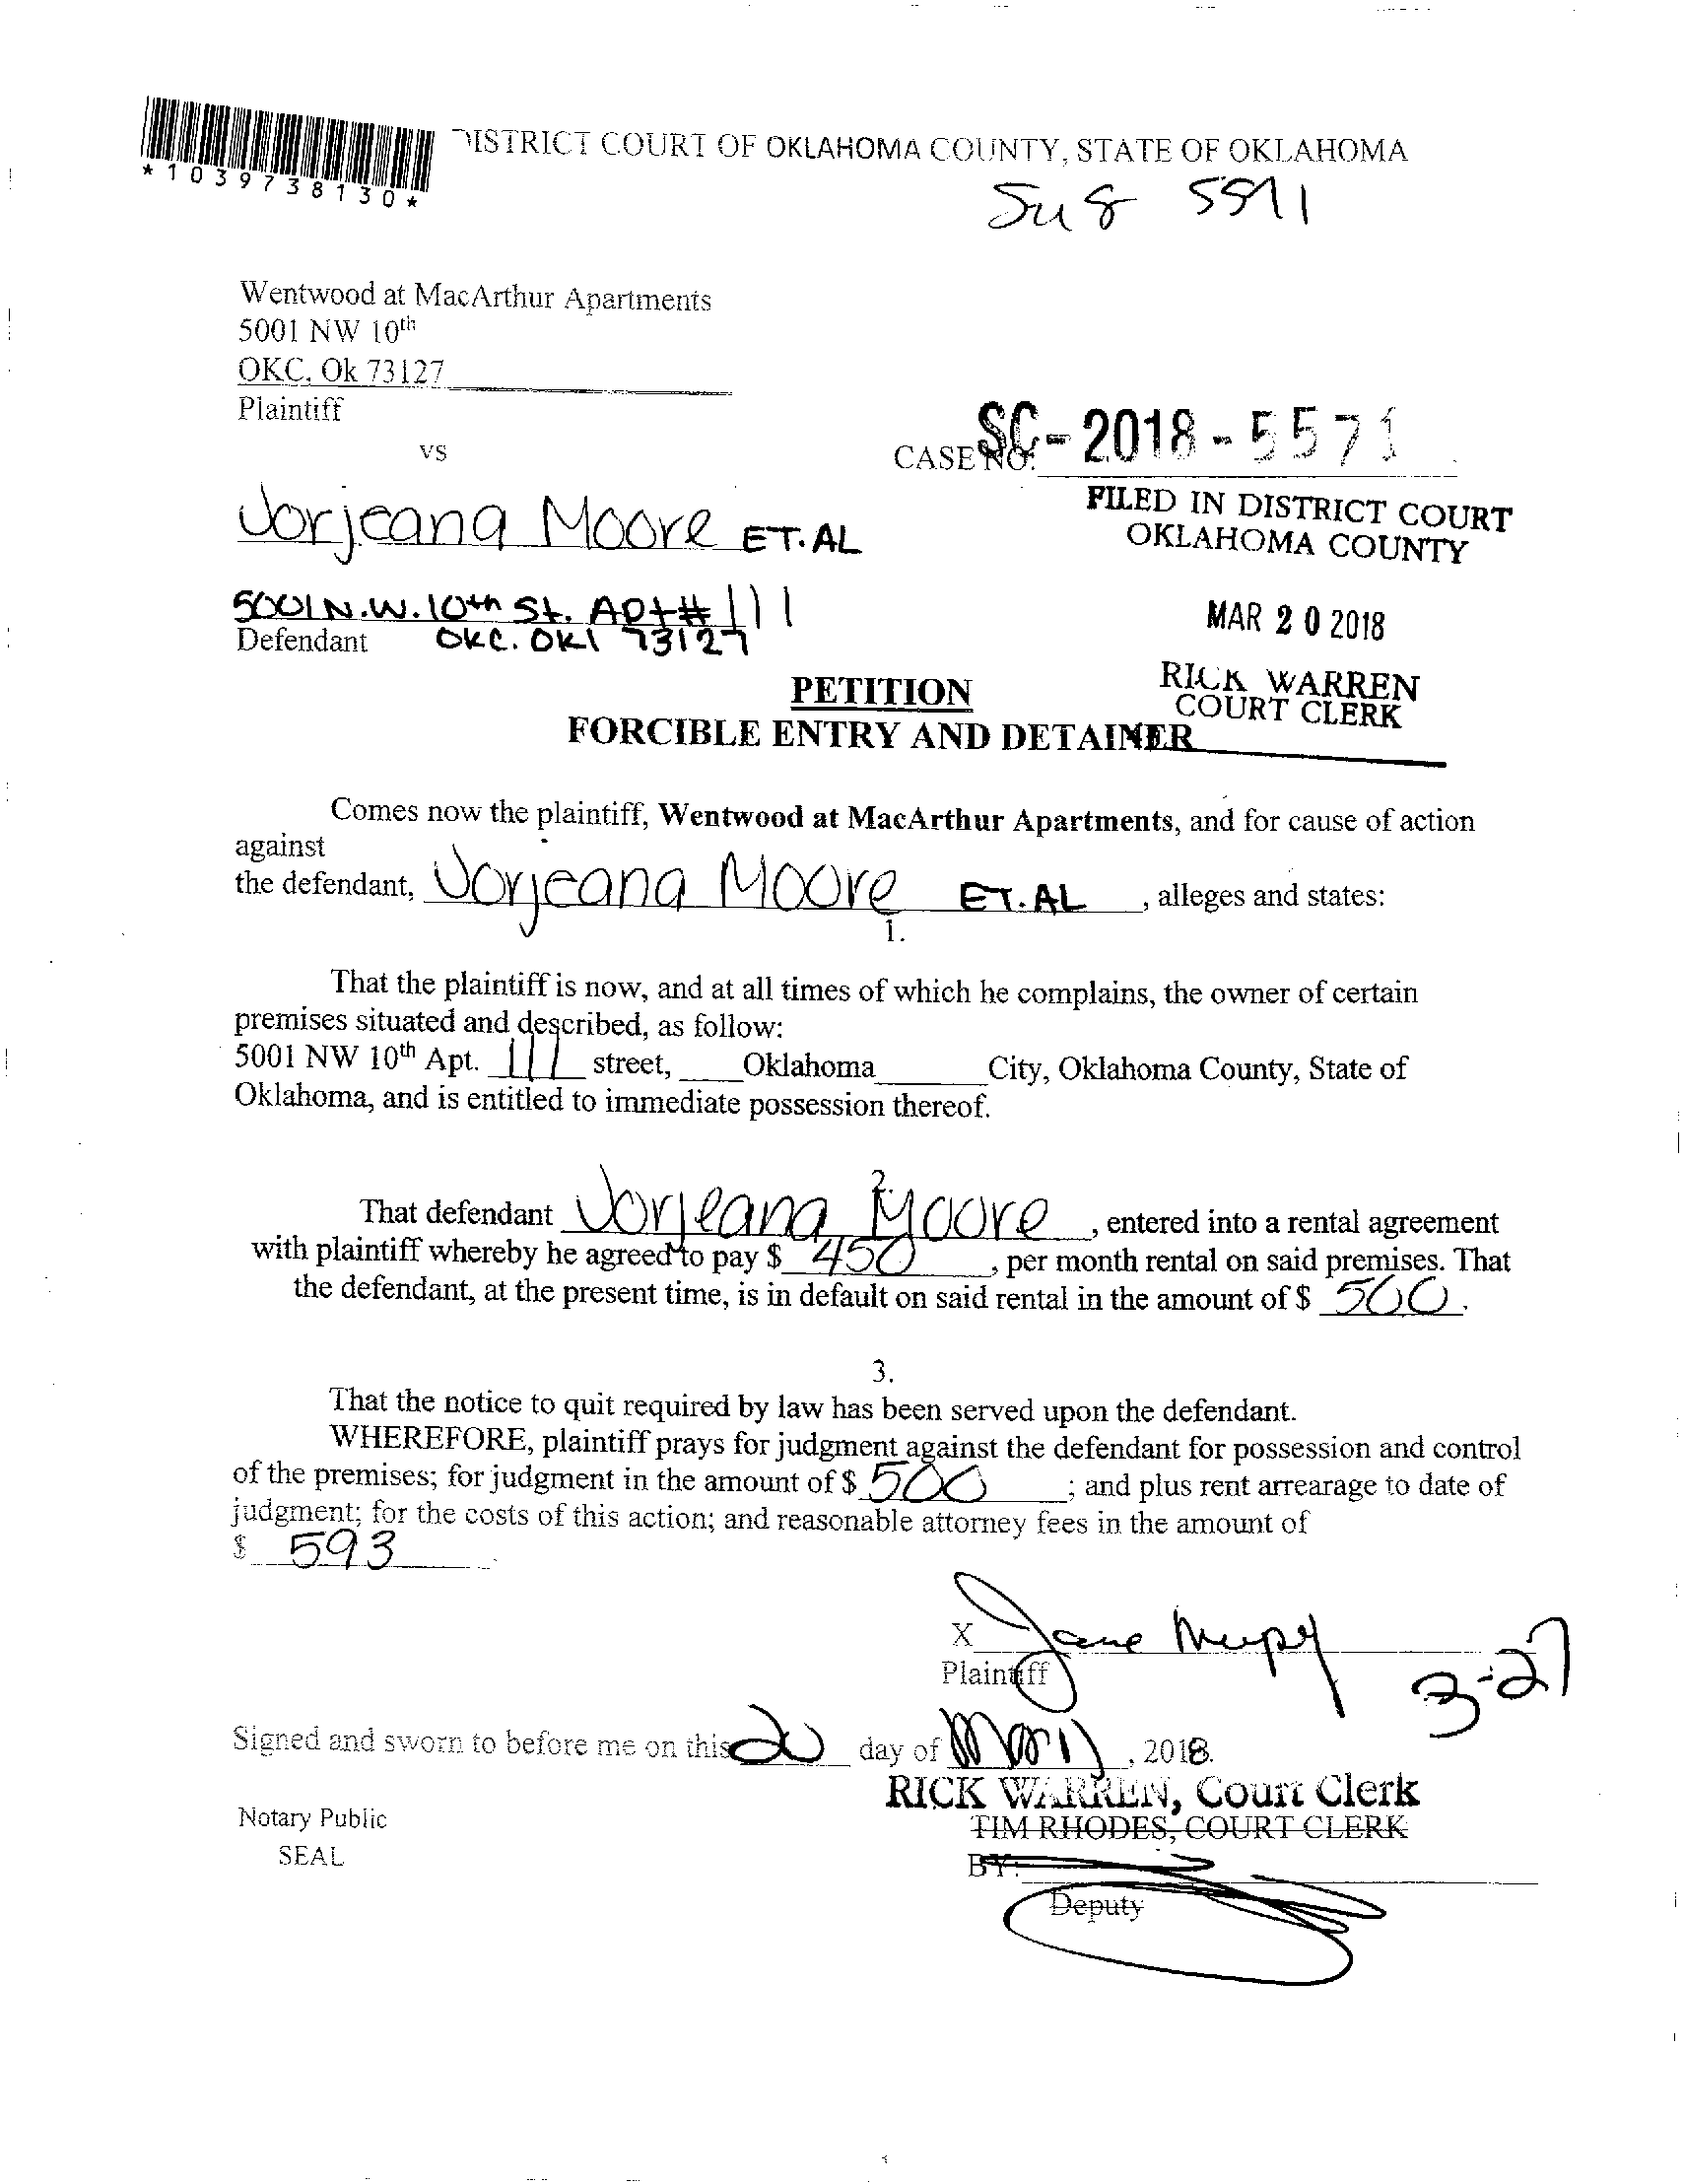 DISTRICT COURT OF OKLAHOMA COUNTY, STATE OF OKLAHOMA
*1039738130*
Wentwood at MacArthur Apartments
5001 NW 10th
OKC, Ok 73127
Plaintiff
vs
CASE NO: SC-2018-5571
Jorjeana Moore ET.AL
FILED IN DISTRICT COURT
OKLAHOMA COUNTY
5001 N.W. 10th St. Apt# 111
Defendant OKC. OKl 73127
MAR 20 2018
RICK WARREN
COURT CLERK
PETITION
FORCIBLE ENTRY AND DETAINER
Comes now the plaintiff, Wentwood at MacArthur Apartments, and for cause of action
against
the defendant, Jorjeana Moore ET.AL , alleges and states:
1.
That the plaintiff is now, and at all times of which he complains, the owner of certain
premises situated and described, as follow:
5001 NW 10th Apt. 111 street, Oklahoma City, Oklahoma County, State of
Oklahoma, and is entitled to immediate possession thereof.
2.
That defendant Jorjeana Moore , entered into a rental agreement
with plaintiff whereby he agreed to pay $ 450 , per month rental on said premises. That
the defendant, at the present time, is in default on said rental in the amount of $ 500.
3.
That the notice to quit required by law has been served upon the defendant.
WHEREFORE, plaintiff prays for judgment against the defendant for possession and control
of the premises; for judgment in the amount of $ 500 ; and plus rent arrearage to date of
judgment; for the costs of this action; and reasonable attorney fees in the amount of
$ 593
X Jane
Plaintiff
3-27
Signed and sworn to before me on this 20 day of March, 2018.
RICK WARREN, Court Clerk
Notary Public
TIM RHODES, COURT CLERK
SEAL
BY:
Deputy